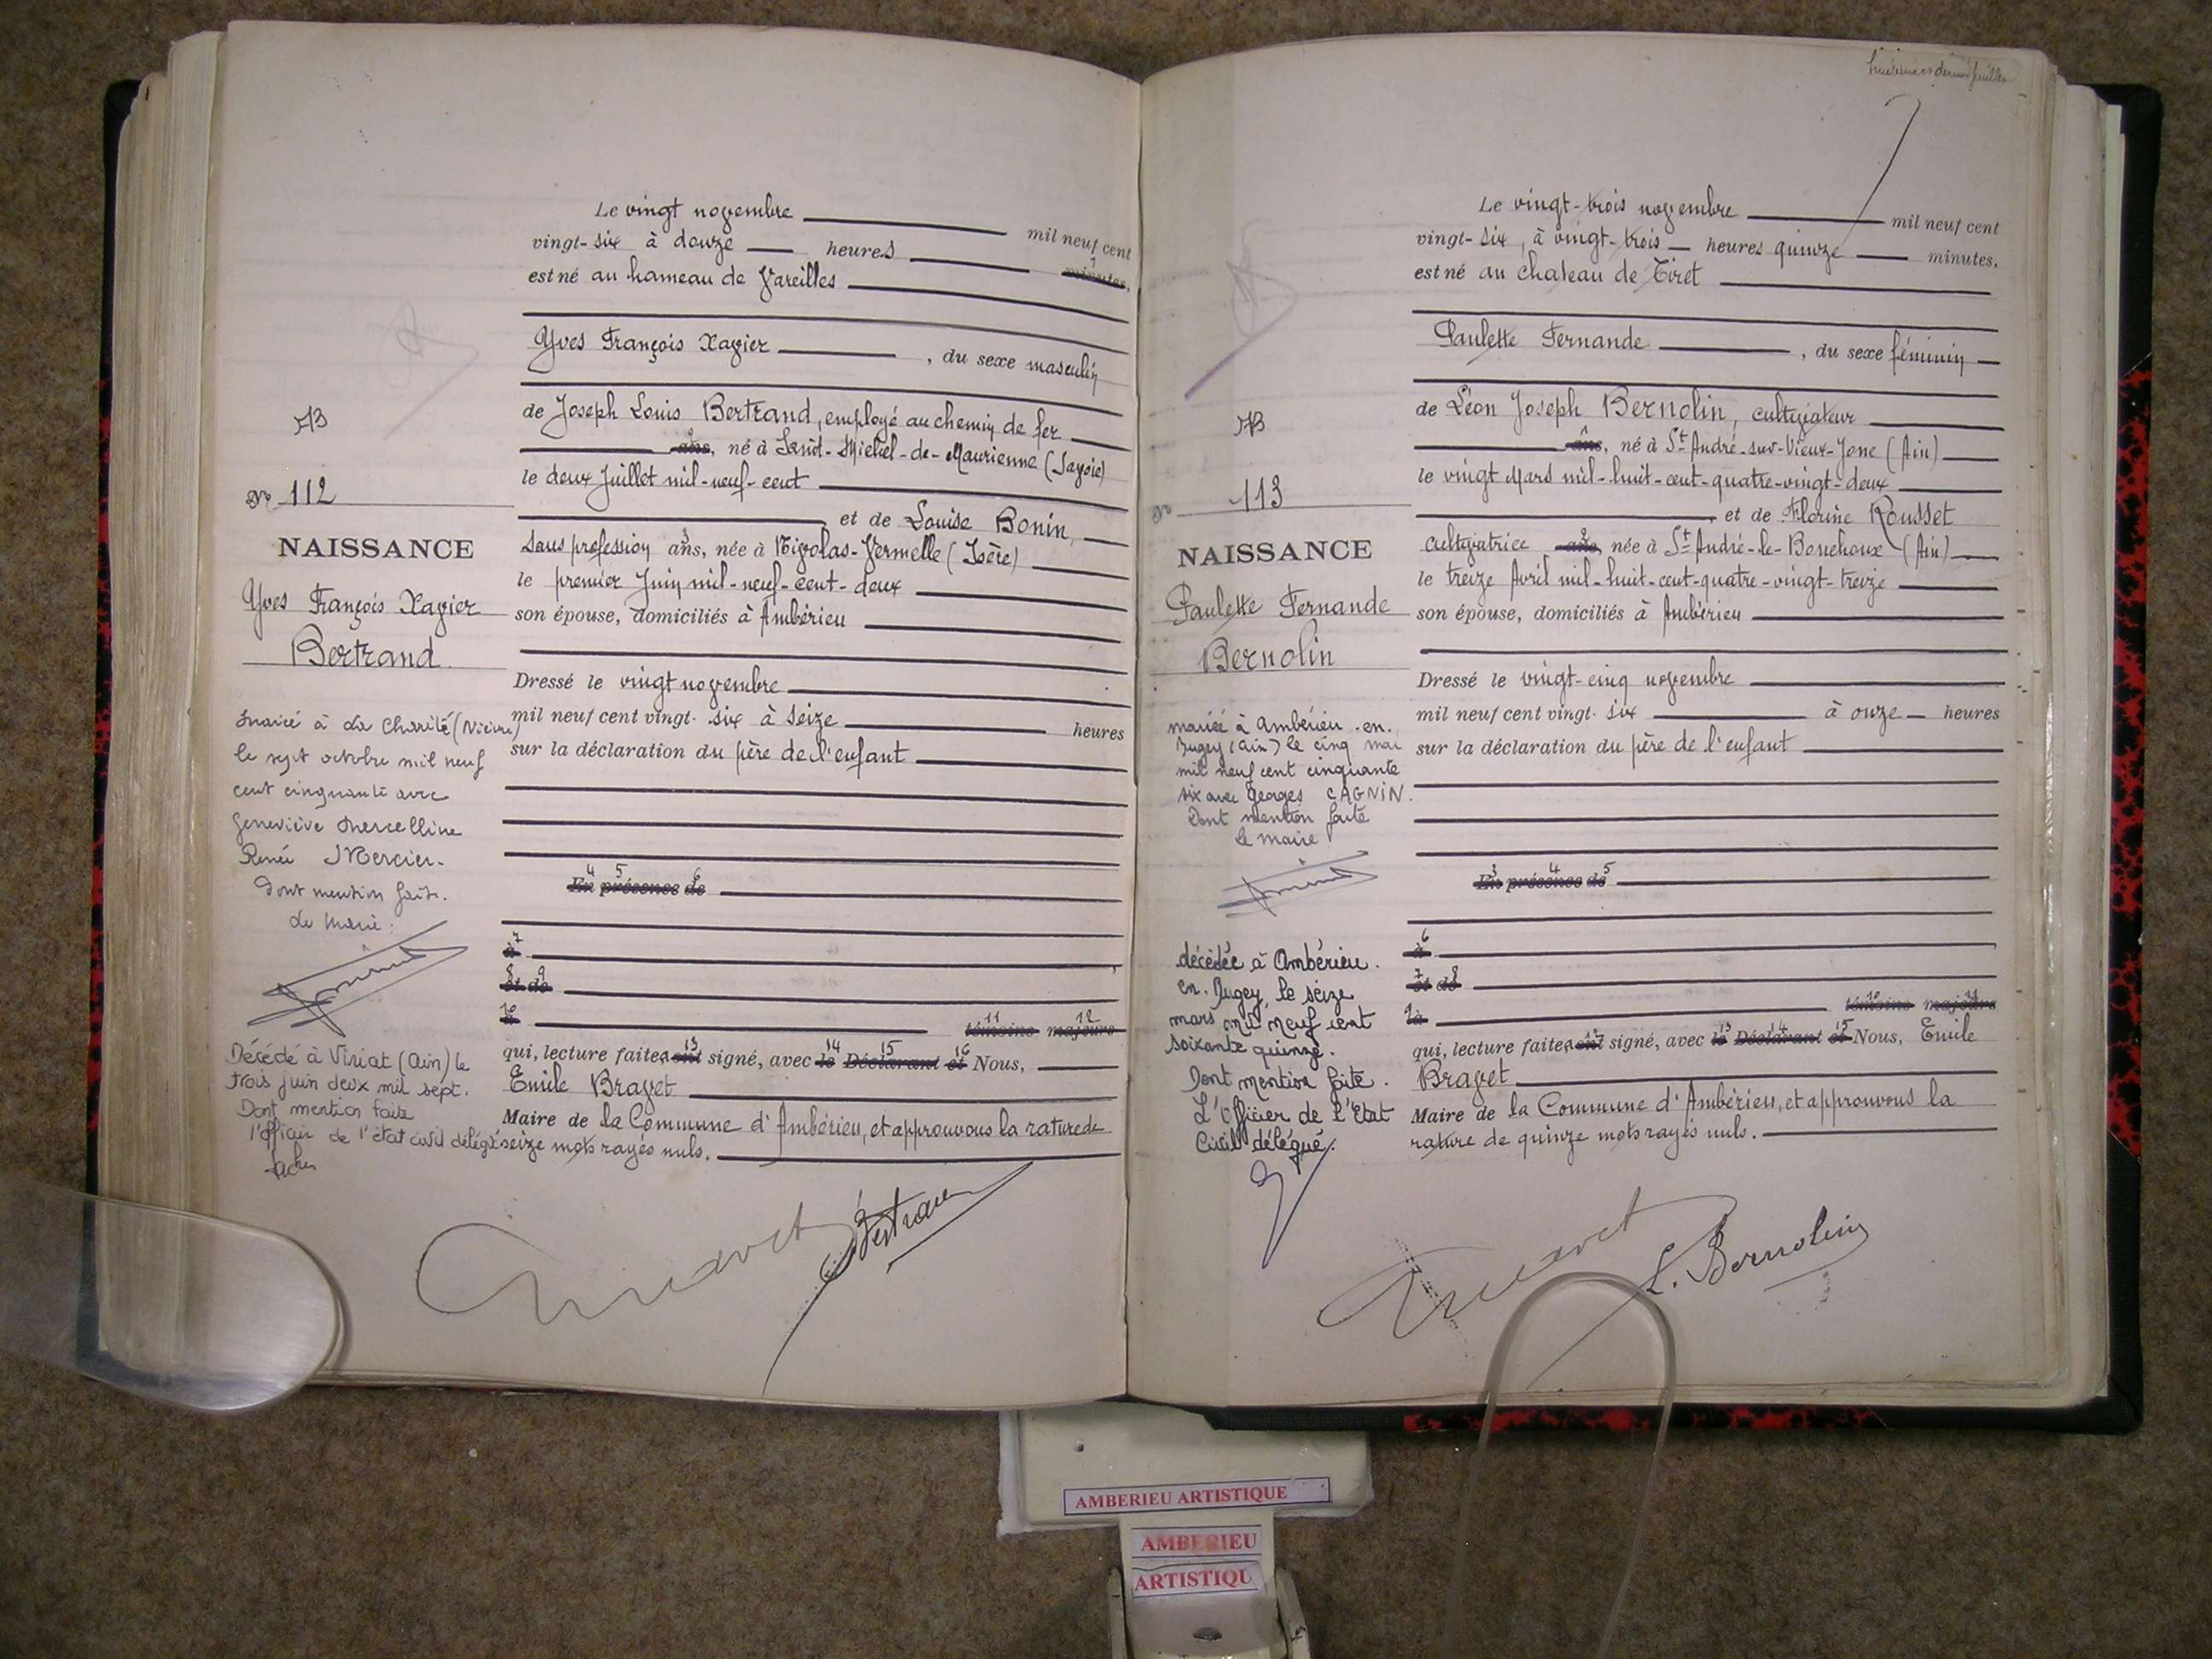 Le vingt novembre mil neuf cent
vingt-six à douze heures minutes,
est né au hameau de Vareilles
Yves François Xavier , du sexe masculin
de Joseph Louis Bertrand, employé au chemin de fer
ans, né à Saint-Michel-de-Maurienne (Savoie)
le deux Juillet mil-neuf-cent
et de Louise Bonin,
sans profession ans, née à Nivolas-Vermelle (Isère)
le premier Juin mil-neuf-cent-deux
son épouse, domiciliés à Ambérieu
Dressé le vingt novembre
mil neuf cent vingt-six à seize heures
sur la déclaration du père de l'enfant
En présence de
à
et de
à
témoins majeurs
qui, lecture faite, ont signé, avec le Déclarant et Nous,
Emile Bravet
Maire de la Commune d'Ambérieu, et approuvons la rature de
seize mots rayés nuls.
AB
No 112
NAISSANCE
Yves François Xavier
Bertrand
marié à La Charité (Nièvre)
le sept octobre mil neuf
cent cinquante avec
Geneviève Marcelline
Renée Mercier.
Dont mention faite.
Le Maire:
Décédé à Viriat (Ain) le
trois juin deux mil sept.
Dont mention faite
l'officier de l'état civil délégué
Bertrand
Le vingt-trois novembre mil neuf cent
vingt-six, à vingt-trois heures quinze minutes,
est né au chateau de Tiret
Paulette Fernande , du sexe féminin
de Léon Joseph Bernolin, cultivateur
ans, né à St-André-sur-Vieux-Jonc (Ain)
le vingt Mars mil-huit-cent-quatre-vingt-deux
et de Florine Rousset
cultivatrice ans, née à St-André-le-Bouchoux (Ain)
le treize Avril mil-huit-cent-quatre-vingt-treize
son épouse, domiciliés à Ambérieu
Dressé le vingt-cinq novembre
mil neuf cent vingt-six à onze heures
sur la déclaration du père de l'enfant
En présence de
à
et de
à
témoins majeurs
qui, lecture faite, ont signé, avec le Déclarant et Nous, Emile
Bravet
Maire de la Commune d'Ambérieu, et approuvons la
rature de quinze mots rayés nuls.
AB
No 113
NAISSANCE
Paulette Fernande
Bernolin
mariée à Ambérieu-en-
Bugey (Ain) le cinq mai
mil neuf cent cinquante
six avec Georges CAGNIN.
Dont mention faite
Le maire
décédée à Ambérieu-
en-Bugey, le seize
mars mil neuf cent
soixante quinze.
Dont mention faite.
L'Officier de l'Etat
Civil délégué.
L. Bernolin
AMBERIEU ARTISTIQUE
AMBERIEU
ARTISTIQU